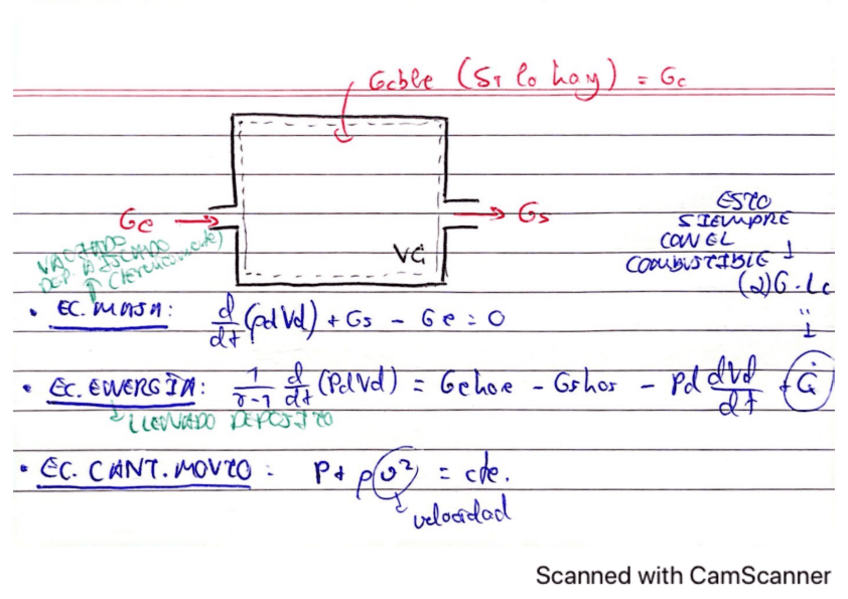 Gcble (Si lo hay) = Gc
Ge
Gs
VC
VACIADO
DEP. AISLADO
(térmicamente)
ESTO
SIEMPRE
CON EL
COMBUSTIBLE
(2)G·Lc
• EC. MASA: d/dt (ρdVd) + Gs - Ge = 0
• EC. ENERGÍA: 1/γ-1 d/dt (PdVd) = Gehoe - Gshos - Pd dVd/dt + Q̇
LLENADO DEPOSITO
• EC. CANT. MOVTO: P + ρv² = cte.
velocidad
Scanned with CamScanner